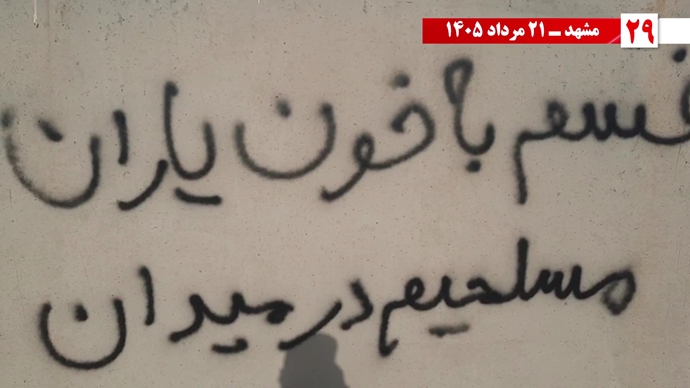 ۲۹ مشهد ـ ۲۱ مرداد ۱۴۰۵
قسم با خون یاران
مسلحیم در میدان